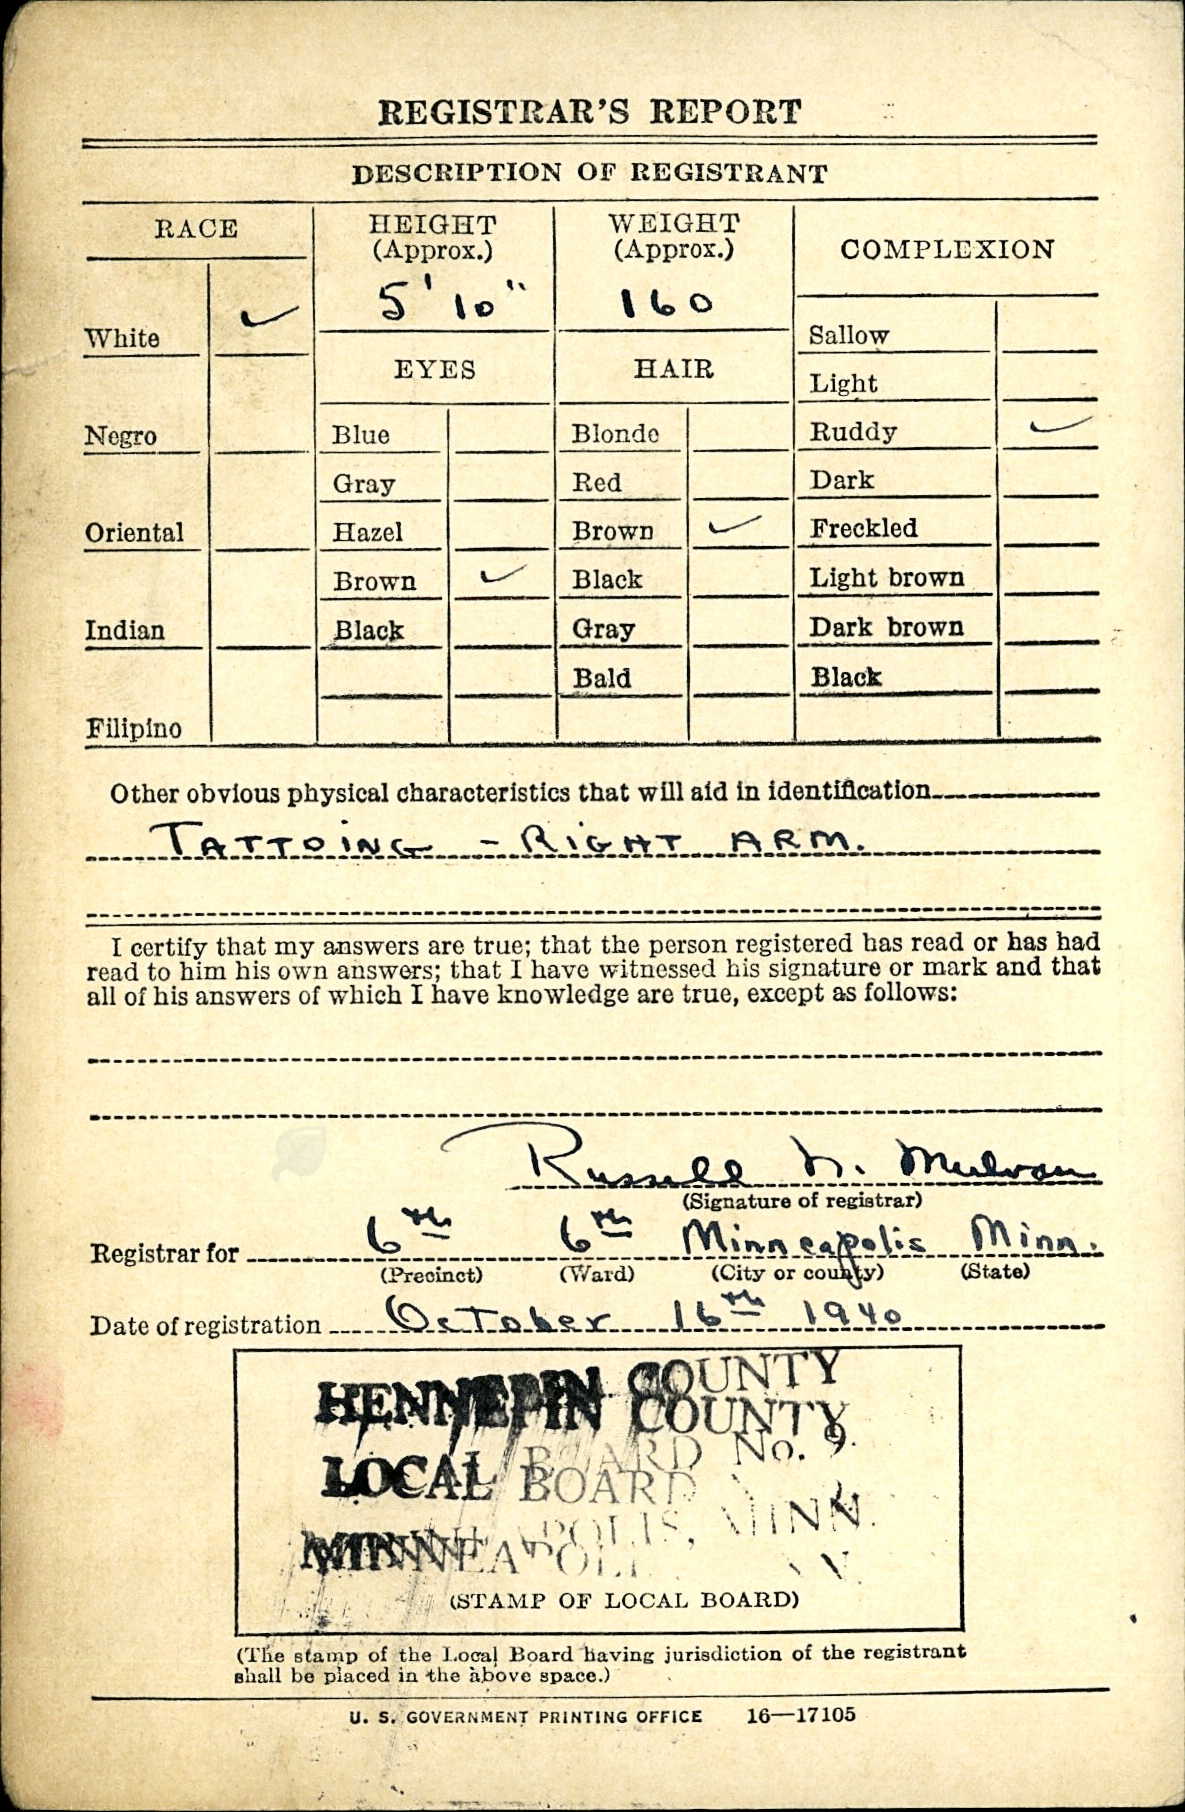 REGISTRAR'S REPORT
DESCRIPTION OF REGISTRANT
RACE
HEIGHT
(Approx.)
WEIGHT
(Approx.)
COMPLEXION
5' 10"
160
White ✓
Sallow
EYES
HAIR
Light
Negro
Blue
Blonde
Ruddy ✓
Gray
Red
Dark
Oriental
Hazel
Brown ✓
Freckled
Brown ✓
Black
Light brown
Indian
Black
Gray
Dark brown
Bald
Black
Filipino
Other obvious physical characteristics that will aid in identification
TATTOING - RIGHT ARM.
I certify that my answers are true; that the person registered has read or has had
read to him his own answers; that I have witnessed his signature or mark and that
all of his answers of which I have knowledge are true, except as follows:
Russell N.
(Signature of registrar)
Registrar for 6th 6th Minneapolis Minn.
(Precinct) (Ward) (City or county) (State)
Date of registration October 16th 1940
HENNEPIN COUNTY
HENNEPIN COUNTY
LOCAL BOARD No. 9.
LOCAL BOARD
MINNEAPOLIS, MINN.
(STAMP OF LOCAL BOARD)
(The stamp of the Local Board having jurisdiction of the registrant
shall be placed in the above space.)
U. S. GOVERNMENT PRINTING OFFICE 16—17105